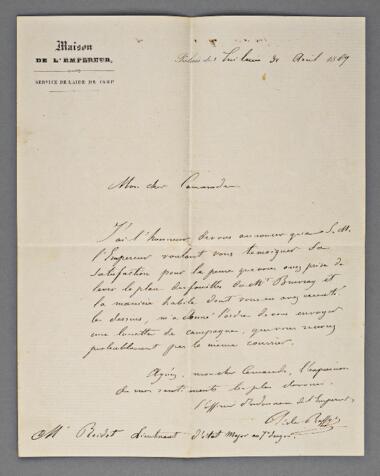 Maison
DE L'EMPEREUR,
SERVICE DE L'AIDE DE CAMP
Palais des Tuileries 30 Avril 1869
Mon cher Camarade
J'ai l'honneur de vous annoncer que S. M.
l'Empereur voulant vous temoigner sa
satisfaction pour la peine que vous avez prise de
lever le plan des fouilles de Mr
la manière habile dont vous en avez executé
le dessin, m'a donné l'ordre de vous envoyer
une lunette de campagne, que vous recevrez
probablement par le même courrier.
Agréez, mon cher Camarade, l'expression
de mes sentiments les plus dévoués.
l'officier d'ordonnance de l'Empereur,
Mr lieutenant d'Etat Major au 7e